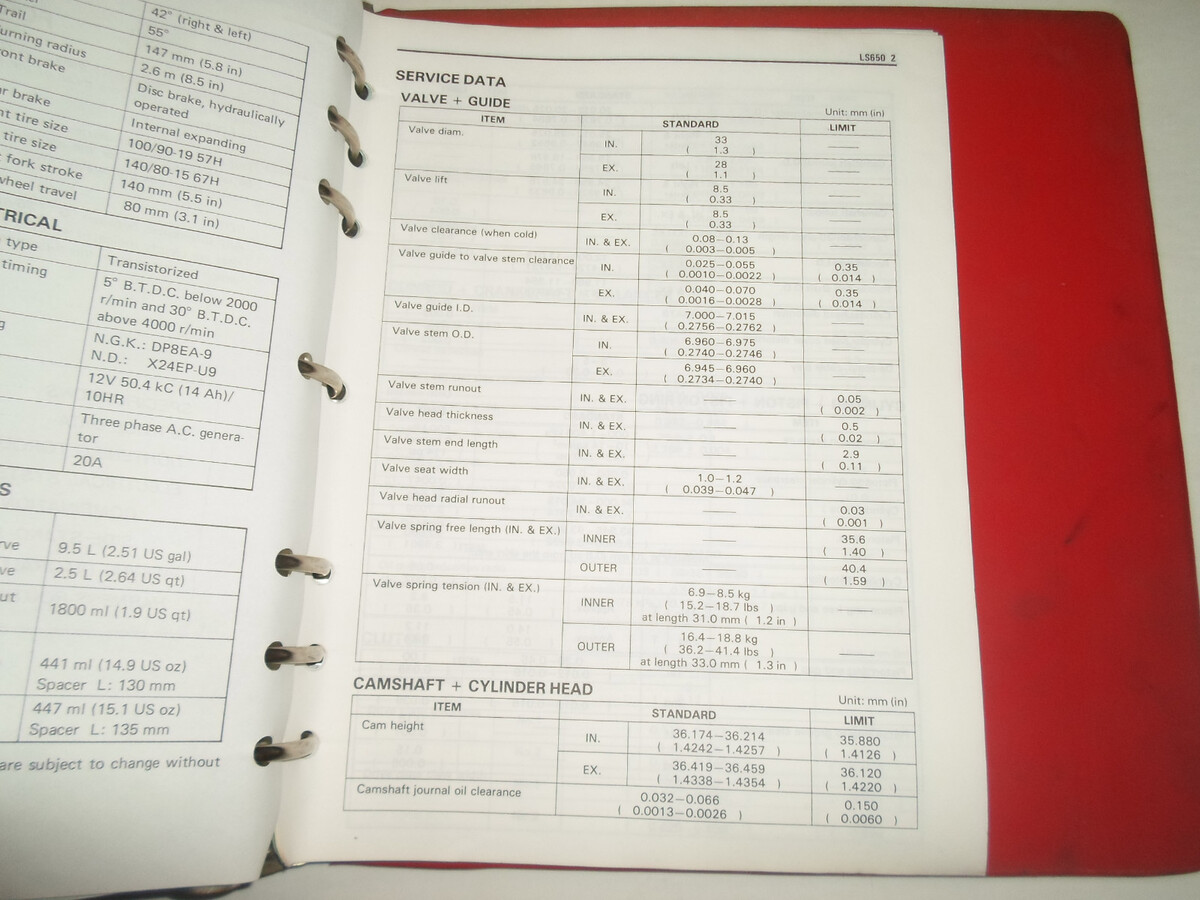 Trail
42° (right & left)
urning radius
55°
ront brake
147 mm (5.8 in)
2.6 m (8.5 in)
r brake
Disc brake, hydraulically
operated
nt tire size
Internal expanding
tire size
100/90-19 57H
fork stroke
140/80-15 67H
wheel travel
140 mm (5.5 in)
80 mm (3.1 in)
TRICAL
type
Transistorized
timing
5° B.T.D.C. below 2000
r/min and 30° B.T.D.C.
above 4000 r/min
g
N.G.K.: DP8EA-9
N.D.: X24EP-U9
12V 50.4 kC (14 Ah)/
10HR
Three phase A.C. genera-
tor
20A
S
rve
9.5 L (2.51 US gal)
ve
2.5 L (2.64 US qt)
ut
1800 ml (1.9 US qt)
441 ml (14.9 US oz)
Spacer L: 130 mm
447 ml (15.1 US oz)
Spacer L: 135 mm
are subject to change without
LS650 2
SERVICE DATA
VALVE + GUIDE
Unit: mm (in)
ITEM STANDARD LIMIT
Valve diam.
IN. 33
( 1.3 )
EX. 28
( 1.1 )
Valve lift
IN. 8.5
( 0.33 )
EX. 8.5
( 0.33 )
Valve clearance (when cold)
IN. & EX. 0.08–0.13
( 0.003–0.005 )
Valve guide to valve stem clearance
IN. 0.025–0.055 0.35
( 0.0010–0.0022 ) ( 0.014 )
EX. 0.040–0.070 0.35
( 0.0016–0.0028 ) ( 0.014 )
Valve guide I.D.
IN. & EX. 7.000–7.015
( 0.2756–0.2762 )
Valve stem O.D.
IN. 6.960–6.975
( 0.2740–0.2746 )
EX. 6.945–6.960
( 0.2734–0.2740 )
Valve stem runout
IN. & EX. 0.05
( 0.002 )
Valve head thickness
IN. & EX. 0.5
( 0.02 )
Valve stem end length
IN. & EX. 2.9
( 0.11 )
Valve seat width
IN. & EX. 1.0–1.2
( 0.039–0.047 )
Valve head radial runout
IN. & EX. 0.03
( 0.001 )
Valve spring free length (IN. & EX.)
INNER 35.6
( 1.40 )
OUTER 40.4
( 1.59 )
Valve spring tension (IN. & EX.)
INNER 6.9–8.5 kg
( 15.2–18.7 lbs )
at length 31.0 mm ( 1.2 in )
OUTER 16.4–18.8 kg
( 36.2–41.4 lbs )
at length 33.0 mm ( 1.3 in )
CAMSHAFT + CYLINDER HEAD
Unit: mm (in)
ITEM STANDARD LIMIT
Cam height
IN. 36.174–36.214 35.880
( 1.4242–1.4257 ) ( 1.4126 )
EX. 36.419–36.459 36.120
( 1.4338–1.4354 ) ( 1.4220 )
Camshaft journal oil clearance
0.032–0.066 0.150
( 0.0013–0.0026 ) ( 0.0060 )